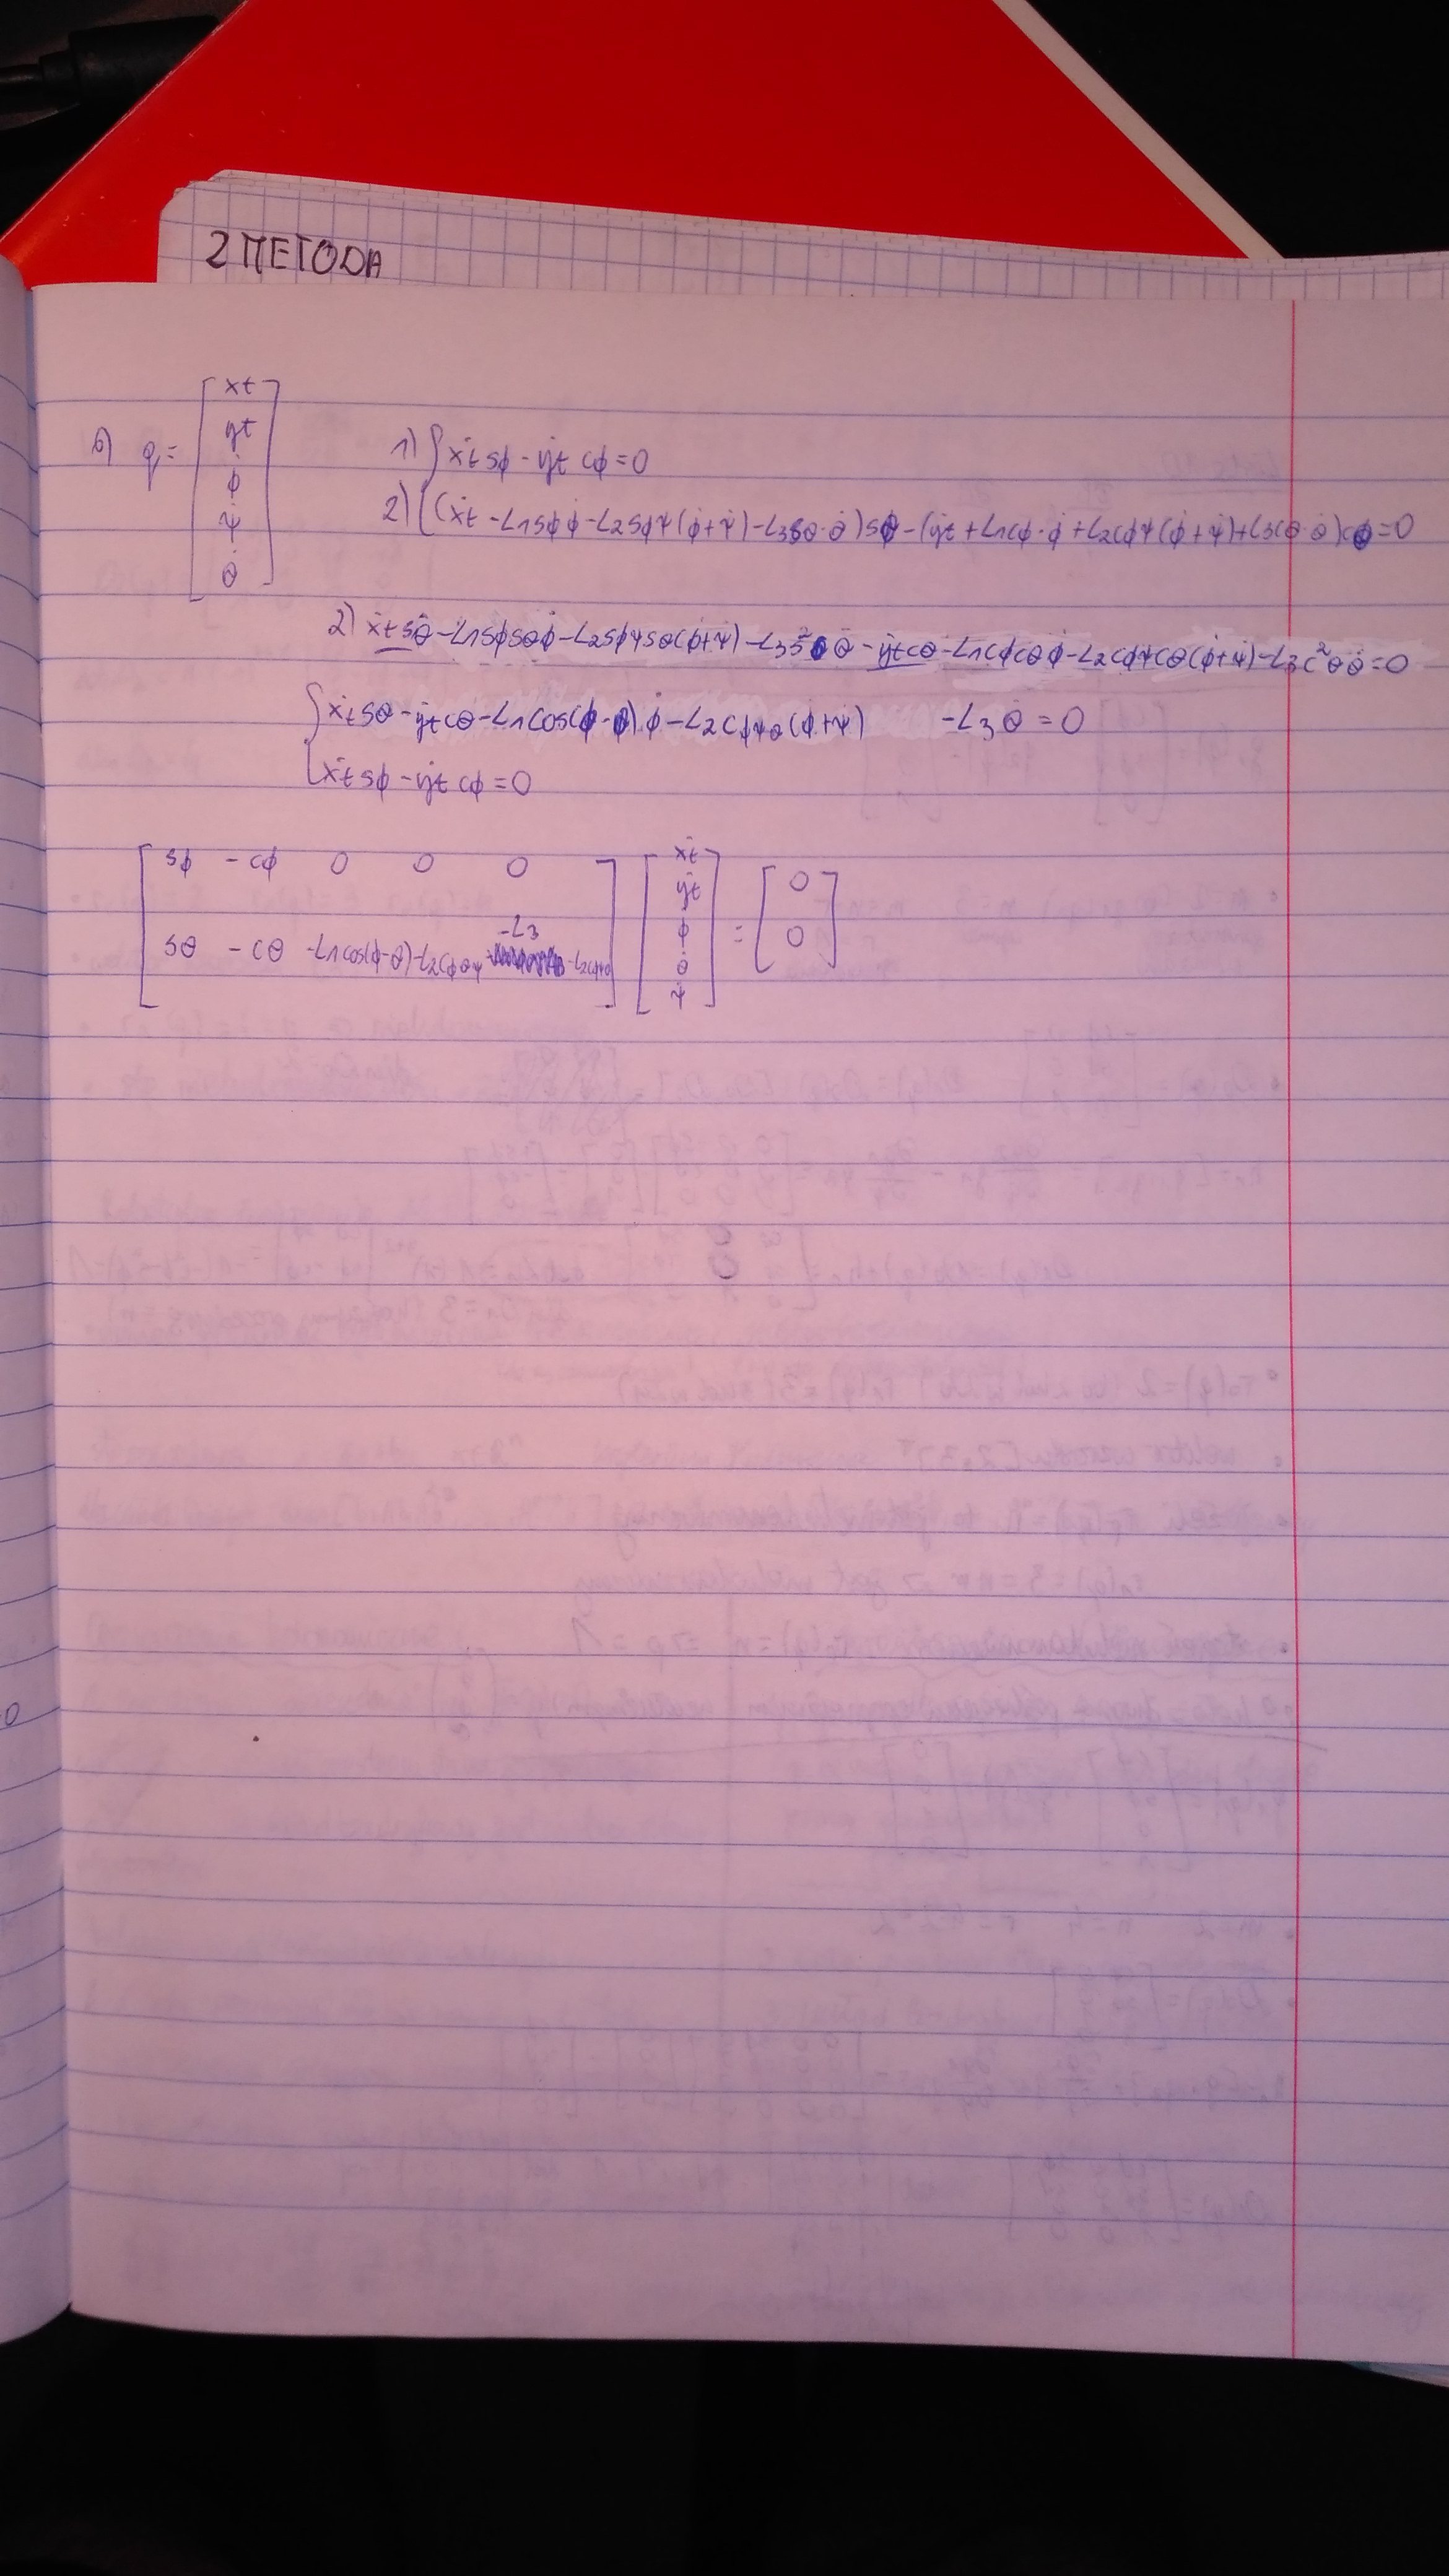 2 METODA
b) q = [xt yt φ ψ θ]
1) { ẋt sφ - ẏt cφ = 0
2) (ẋt - L1sφφ̇ - L2sφψ(φ̇+ψ̇) - L3sθ·θ̇)sθ - (ẏt + L1cφ·φ̇ + L2cφψ(φ̇+ψ̇) + L3cθ·θ̇)cθ = 0
2) ẋt sθ - L1sφsθφ̇ - L2sφψsθ(φ̇+ψ̇) - L3s²θ θ̇ - ẏt cθ - L1cφcθφ̇ - L2cφψcθ(φ̇+ψ̇) - L3c²θθ̇ = 0
{ ẋt sθ - ẏt cθ - L1cos(φ-θ)·φ̇ - L2cφψθ(φ̇+ψ̇) - L3θ̇ = 0
ẋt sφ - ẏt cφ = 0
[ sφ - cφ 0 0 0 ] [ẋt ẏt φ̇ θ̇ ψ̇] = [0 0]
-L3
sθ - cθ -L1cos(φ-θ)-L2cφθψ -L2cφψθ